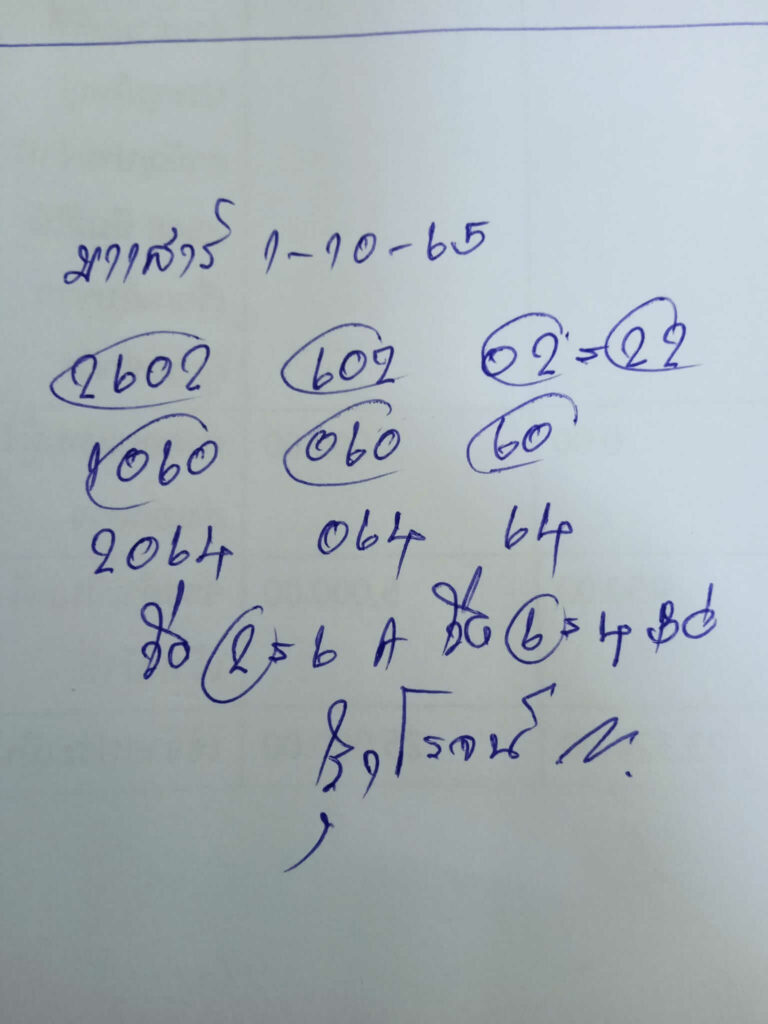 มาเสาร์ 1-10-65
2602 602 02=22
1060 060 60
2064 064 64
2=6 A 6=4